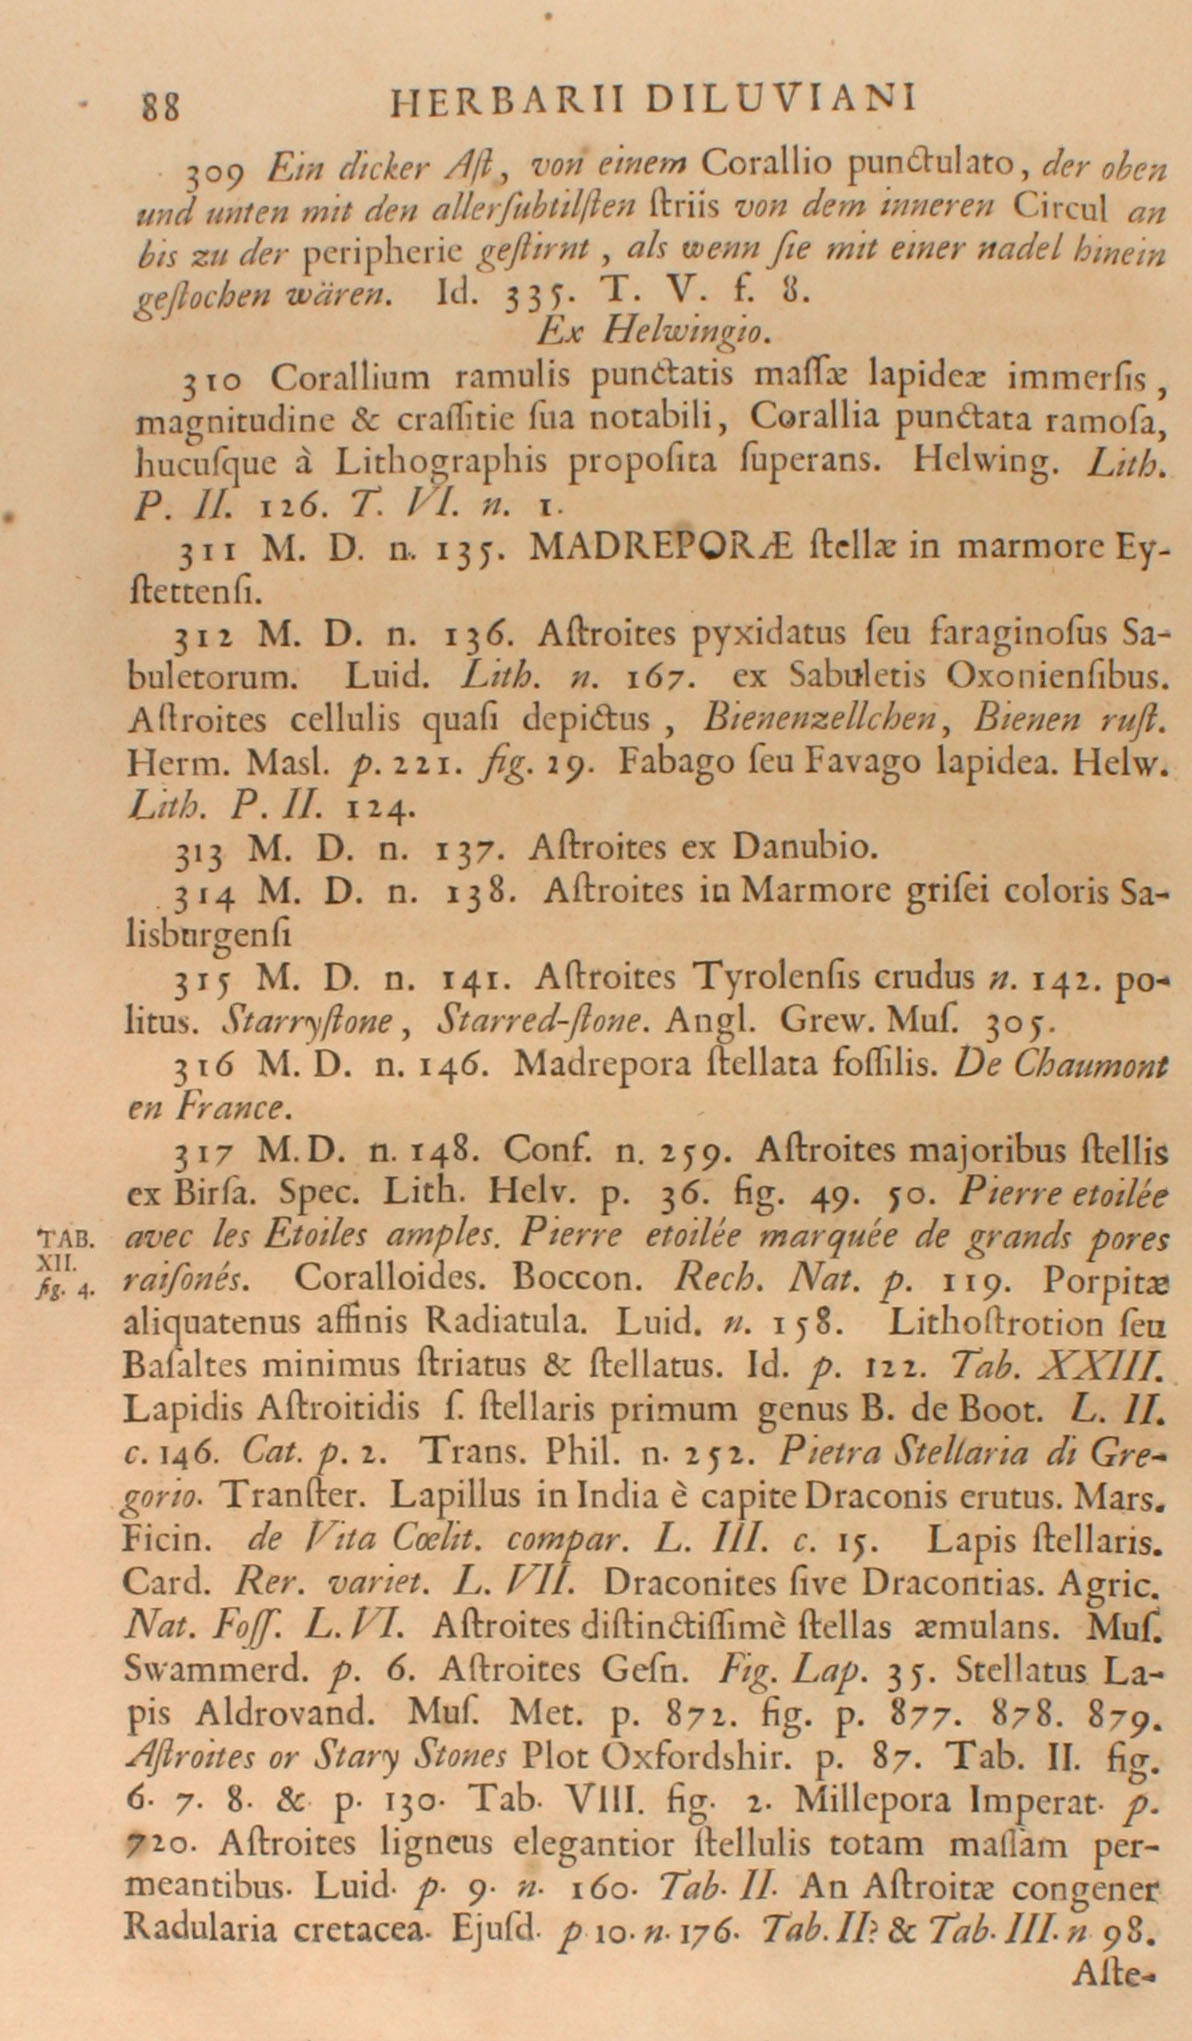 88 HERBARII DILUVIANI
309 Ein dicker Aſt, von einem Corallio punctulato, der oben
und unten mit den allerſubtilſten ſtriis von dem inneren Circul an
bis zu der peripherie geſtirnt, als wenn ſie mit einer nadel hinein
geſtochen wären. Id. 335. T. V. f. 8.
Ex Helwingio.
310 Corallium ramulis punctatis maſſæ lapideæ immerſis,
magnitudine & craſſitie ſua notabili, Corallia punctata ramoſa,
hucuſque à Lithographis propoſita ſuperans. Helwing. Lith.
P. II. 126. T. VI. n. 1.
311 M. D. n. 135. MADREPORÆ ſtellæ in marmore Ey-
ſtettenſi.
312 M. D. n. 136. Aſtroites pyxidatus ſeu faraginoſus Sa-
buletorum. Luid. Lith. n. 167. ex Sabuletis Oxonienſibus.
Aſtroites cellulis quaſi depictus, Bienenzellchen, Bienen ruſt.
Herm. Masl. p. 221. fig. 29. Fabago ſeu Favago lapidea. Helw.
Lith. P. II. 124.
313 M. D. n. 137. Aſtroites ex Danubio.
314 M. D. n. 138. Aſtroites in Marmore griſei coloris Sa-
lisburgenſi
315 M. D. n. 141. Aſtroites Tyrolenſis crudus n. 142. po-
litus. Starryſtone, Starred-ſtone. Angl. Grew. Muſ. 305.
316 M. D. n. 146. Madrepora ſtellata foſſilis. De Chaumont
en France.
317 M. D. n. 148. Conf. n. 259. Aſtroites majoribus ſtellis
ex Birſa. Spec. Lith. Helv. p. 36. fig. 49. 50. Pierre etoilée
avec les Etoiles amples. Pierre etoilée marquée de grands pores
TAB.
XII.
fig. 4.
raiſonés. Coralloides. Boccon. Rech. Nat. p. 119. Porpitæ
aliquatenus affinis Radiatula. Luid. n. 158. Lithoſtrotion ſeu
Baſaltes minimus ſtriatus & ſtellatus. Id. p. 122. Tab. XXIII.
Lapidis Aſtroitidis ſ. ſtellaris primum genus B. de Boot. L. II.
c. 146. Cat. p. 2. Trans. Phil. n. 252. Pietra Stellaria di Gre-
gorio. Tranſter. Lapillus in India è capite Draconis erutus. Mars.
Ficin. de Vita Cœlit. compar. L. III. c. 15. Lapis ſtellaris.
Card. Rer. variet. L. VII. Draconites ſive Dracontias. Agric.
Nat. Foſſ. L. VI. Aſtroites diſtinctiſſimè ſtellas æmulans. Muſ.
Swammerd. p. 6. Aſtroites Geſn. Fig. Lap. 35. Stellatus La-
pis Aldrovand. Muſ. Met. p. 872. fig. p. 877. 878. 879.
Aſtroites or Stary Stones Plot Oxfordshir. p. 87. Tab. II. fig.
6. 7. 8. & p. 130. Tab. VIII. fig. 2. Millepora Imperat. p.
720. Aſtroites ligneus elegantior ſtellulis totam maſſam per-
meantibus. Luid. p. 9. n. 160. Tab. II. An Aſtroitæ congener
Radularia cretacea. Ejuſd. p 10. n. 176. Tab. II? & Tab. III. n 98.
Aſte-